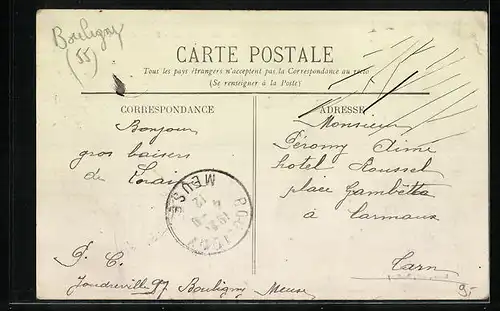 Bouligny
(55)
CARTE POSTALE
Tous les pays étrangers n'acceptent pas la Correspondance au recto
(Se renseigner à la Poste)
CORRESPONDANCE
Bonjour
gros baisers
de
P. C.
Joudreville 97 Bouligny Meuse
ADRESSE
Monsieur
Péromy Aimé
hotel Roussel
place Gambetta
à Carmaux
Tarn
MEUSE
9.-